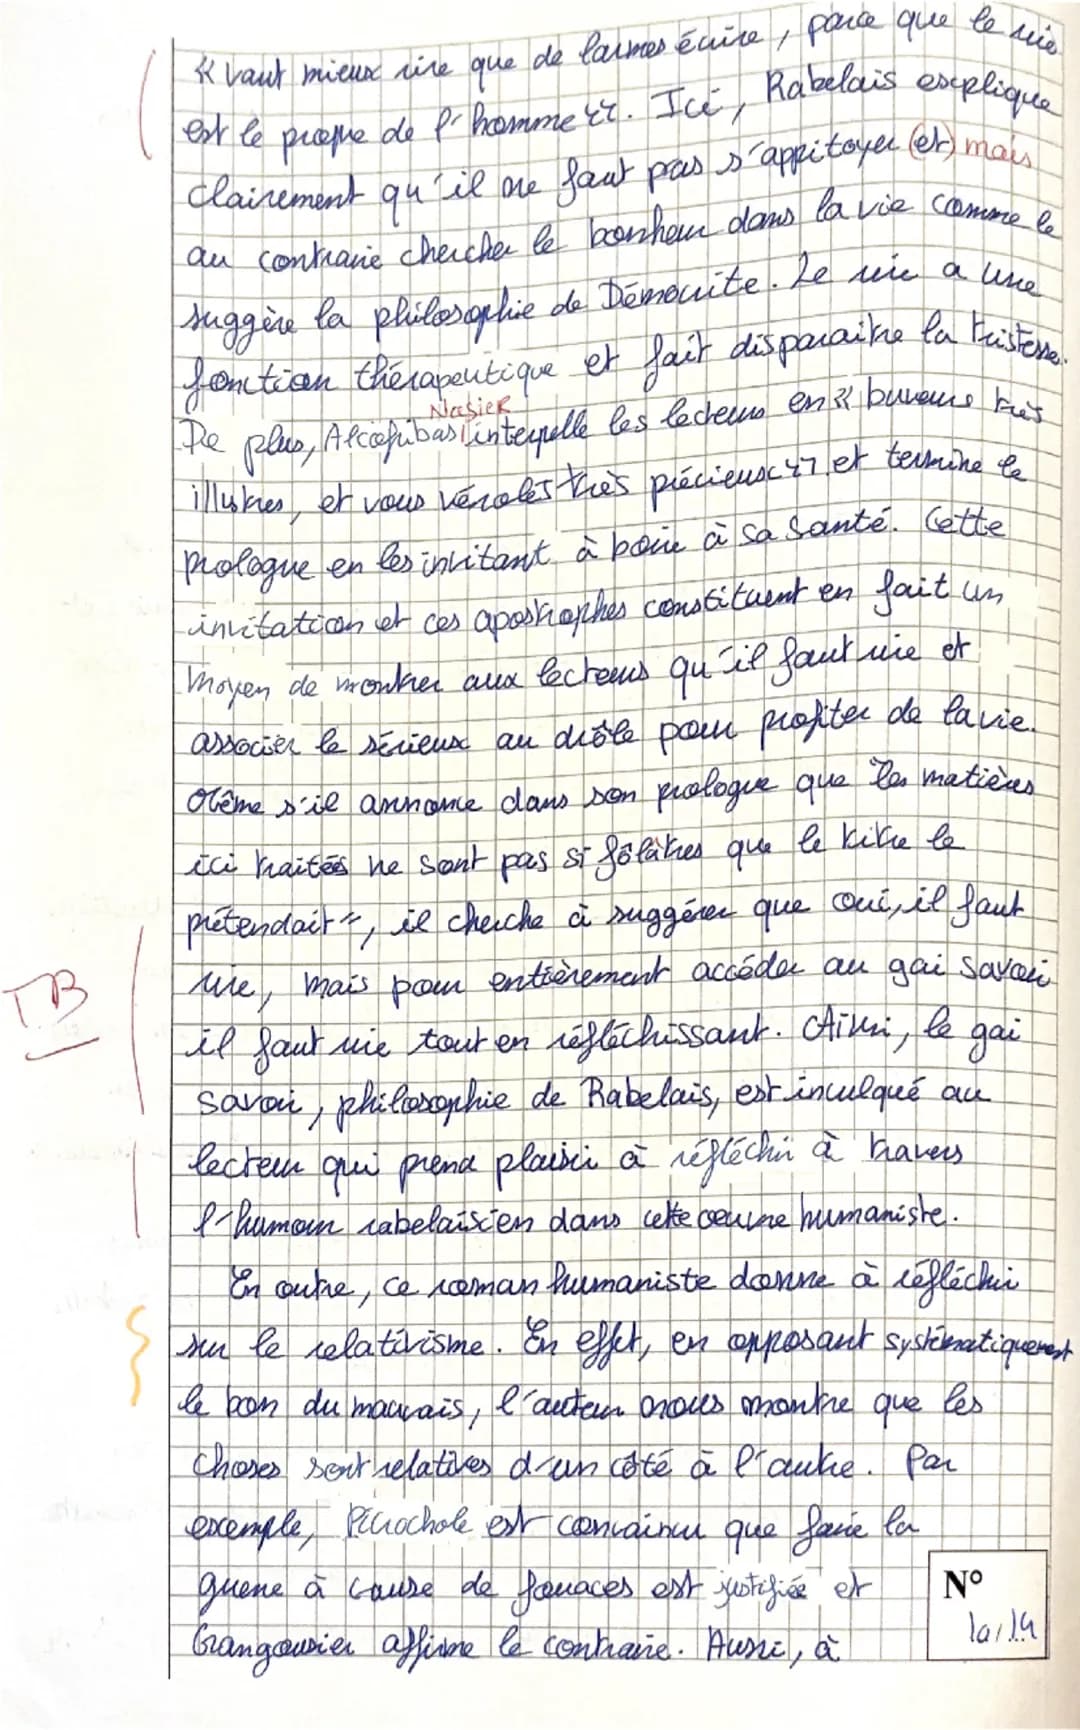 « vaut mieux rire que de larmes écrire, parce que le rire
est le propre de l'homme ». Ici, Rabelais explique
clairement qu'il ne faut pas s'appitoyer (et) mais
au contraire chercher le bonheur dans la vie comme le
suggère la philosophie de Démocrite. Le rire a une
fonction thérapeutique et fait disparaitre la tristesse.
Nasier
De plus, Alcofribas interpelle les lecteurs en « buveurs très
illustres, et vous vérolés très précieux » et termine le
prologue en les invitant à boire à sa santé. Cette
invitation et ces apostrophes constituent en fait un
moyen de montrer aux lecteurs qu'il faut rire et
associer le sérieux au drôle pour profiter de la vie.
Même s'il annonce dans son prologue que "les matières
ici traités ne sont pas si folâtres que le titre le
prétendait", il cherche à suggérer que oui, il faut
rire, mais pour entièrement accéder au gai savoir
il faut rire tout en réfléchissant. Ainsi, le gai
TB
savoir, philosophie de Rabelais, est inculqué au
lecteur qui prend plaisir à réfléchir à travers
l'humour rabelaisien dans cette oeuvre humaniste.
En outre, ce roman humaniste donne à réfléchir
sur le relativisme. En effet, en opposant systématiquement
le bon du mauvais, l'auteur nous montre que les
choses sont relatives d'un côté à l'autre. Par
exemple, Picrochole est convaincu que faire la
guerre à cause de fouaces est justifiée et
Grangousier affirme le contraire. Aussi, à
N°
10/14